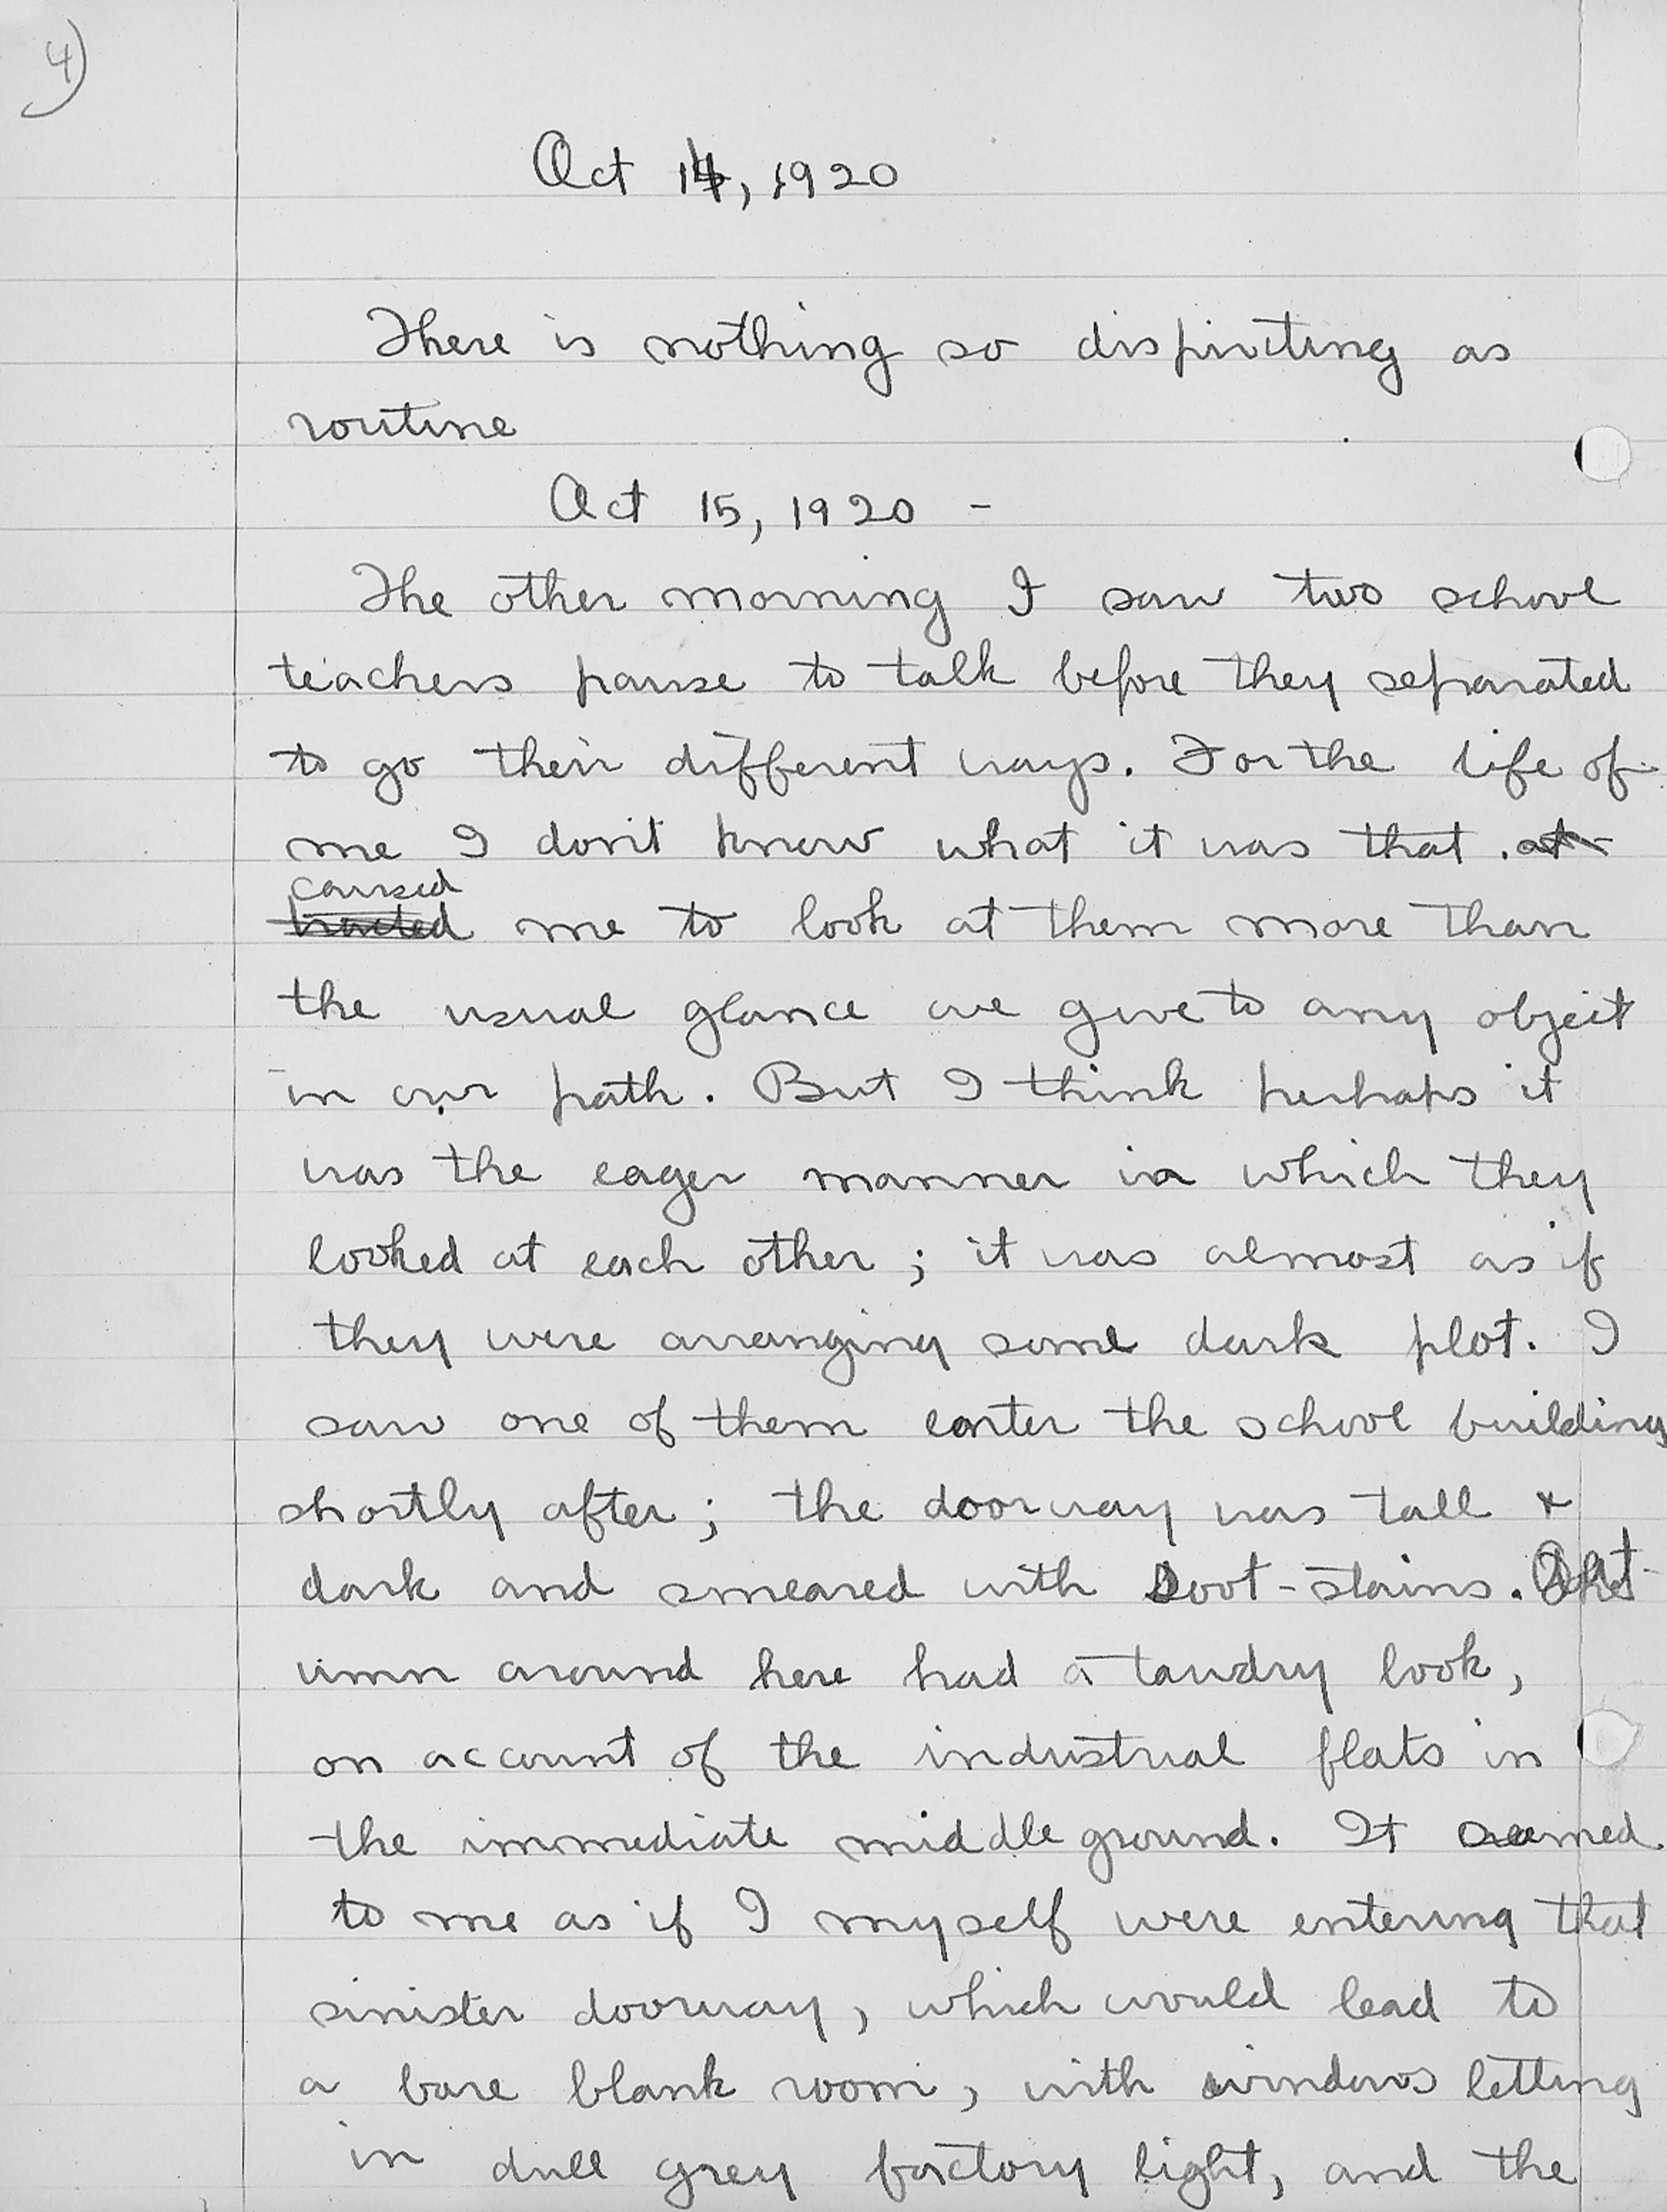 4)
Oct 14, 1920
There is nothing so dispiriting as
routine
Oct 15, 1920 -
The other morning I saw two school
teachers pause to talk before they separated
to go their different ways. For the life of
me I don't know what it was that at
caused
tracted me to look at them more than
the usual glance we give to any object
in our path. But I think perhaps it
was the eager manner in which they
looked at each other; it was almost as if
they were arranging some dark plot. I
saw one of them enter the school building
shortly after; the doorway was tall &
dark and smeared with soot-stains. Aut-
umn around here had a tawdry look,
on account of the industrial flats in
the immediate middle ground. It seemed
to me as if I myself were entering that
sinister doorway, which would lead to
a bare blank room, with windows letting
in dull grey factory light, and the